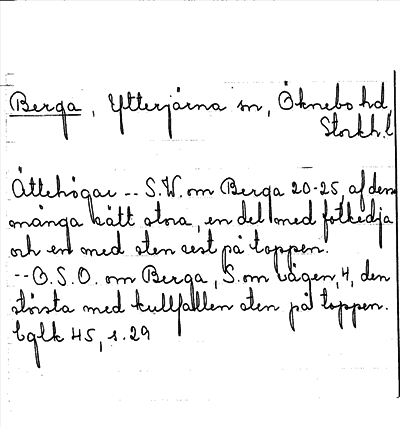 Berga, Ytterjärna sn, Öknebo hd,
Stockh.l
Ättehögar -- S.W. om Berga 20-25, af dem
många rätt stora, en del med fotkedja
och en med sten rest på toppen.
-- O.S.O. om Berga, S. om vägen, 4, den
största med kullfallen sten på toppen.
bglk 45, s. 29